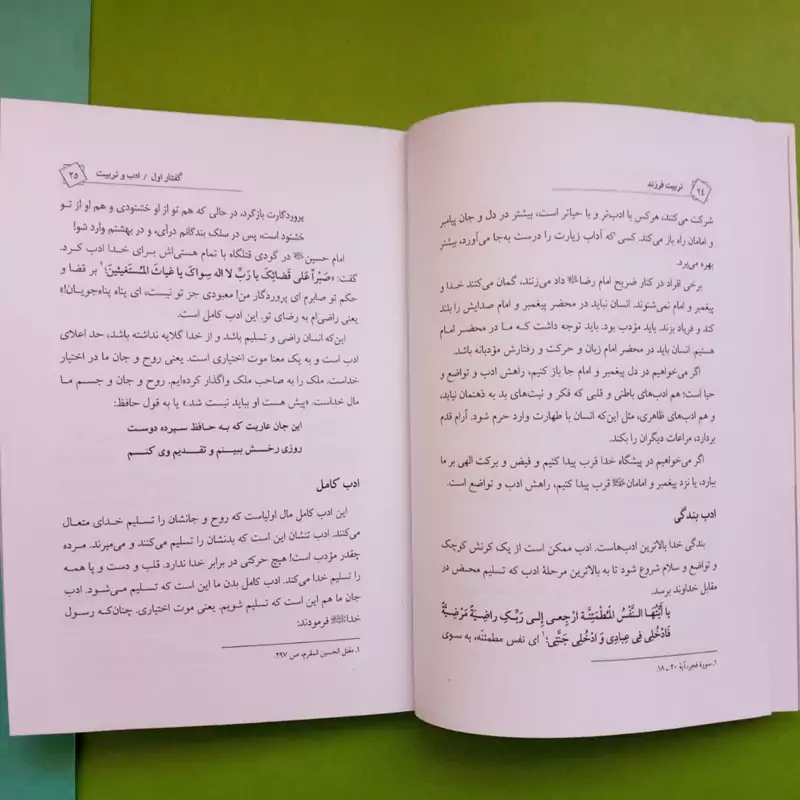 ۲۴ تربیت فرزند
شرکت می‌کنند، هرکس با ادب‌تر و با حیاتر است، بیشتر در دل و جان پیامبر
و امامان راه باز می‌کند. کسی که آداب زیارت را درست به‌جا می‌آورد، بیشتر
بهره می‌برد.
برخی افراد در کنار ضریح امام رضا داد می‌زنند، گمان می‌کنند خدا و
پیغمبر و امام نمی‌شنوند. انسان نباید در محضر پیغمبر و امام صدایش را بلند
کند و فریاد بزند. باید مؤدب بود. باید توجه داشت که ما در محضر امام
هستیم. انسان باید در محضر امام زبان و حرکت و رفتارش مؤدبانه باشد.
اگر می‌خواهیم در دل پیغمبر و امام جا باز کنیم، راهش ادب و تواضع و
حیا است؛ هم ادب‌های باطنی و قلبی که فکر و نیت‌های بد به ذهنمان نیاید،
و هم ادب‌های ظاهری، مثل این‌که انسان با طهارت وارد حرم شود. آرام قدم
بردارد، مراعات دیگران را بکند.
اگر می‌خواهیم در پیشگاه خدا قرب پیدا کنیم و فیض و برکت الهی بر ما
ببارد، یا نزد پیغمبر و امامان قرب پیدا کنیم، راهش ادب و تواضع است.
ادب بندگی
بندگی خدا بالاترین ادب‌هاست. ادب ممکن است از یک کرنش کوچک
و تواضع و سلام شروع شود تا به بالاترین مرحلهٔ ادب که تسلیم محض در
مقابل خداوند برسد.
یا أَیَّتُهَا النَّفْسُ المُطْمَئِنَّة ارْجِعی إِلی رَبِّکِ راضِیَةً مَرْضِیَّةً
فَادْخُلِی فِی عِبادِی وَ ادْخُلِی جَنَّتِی؛۱ ای نفس مطمئنّه، به سوی
۱. سورهٔ فجر، آیهٔ ۲۰ــ۱۸.
گفتار اول / ادب و تربیت ۲۵
پروردگارت بازگرد، در حالی که هم تو از او خشنودی و هم او از تو
خشنود است، پس در سلک بندگانم درآی، و در بهشتم وارد شو!
امام حسین در گودی قتلگاه با تمام هستی‌اش برای خدا ادب کرد.
گفت: «صَبْراً عَلی قَضائِکَ یا رَبِّ لا اله سِواکَ یا غیاثَ المُستَغیثینَ؛۱ بر قضا و
حکم تو صابرم ای پروردگار من! معبودی جز تو نیست، ای پناه پناه‌جویان!»
یعنی راضی‌ام به رضای تو. این ادب کامل است.
این‌که انسان راضی و تسلیم باشد و از خدا گلایه نداشته باشد، حد اعلای
ادب است و به یک معنا موت اختیاری است. یعنی روح و جان ما در اختیار
خداست. ملک را به صاحب ملک واگذار کرده‌ایم. روح و جان و جسم ما
مال خداست. «پیش هست او بباید نیست شد.» یا به قول حافظ:
این جان عاریت که به حافظ سپرده دوست
روزی رخش ببینم و تقدیم وی کنم
ادب کامل
این ادب کامل مال اولیاست که روح و جانشان را تسلیم خدای متعال
می‌کنند. ادب تنشان این است که بدنشان را تسلیم می‌کنند و می‌میرند. مرده
چقدر مؤدب است! هیچ حرکتی در برابر خدا ندارد. قلب و دست و پا همه
را تسلیم خدا می‌کند. ادب کامل بدن ما این است که تسلیم می‌شود. ادب
جان ما هم این است که تسلیم شویم. یعنی موت اختیاری. چنان‌که رسول
خدا فرمودند:
۱. مقتل الحسین المقرم، ص ۲۹۷.